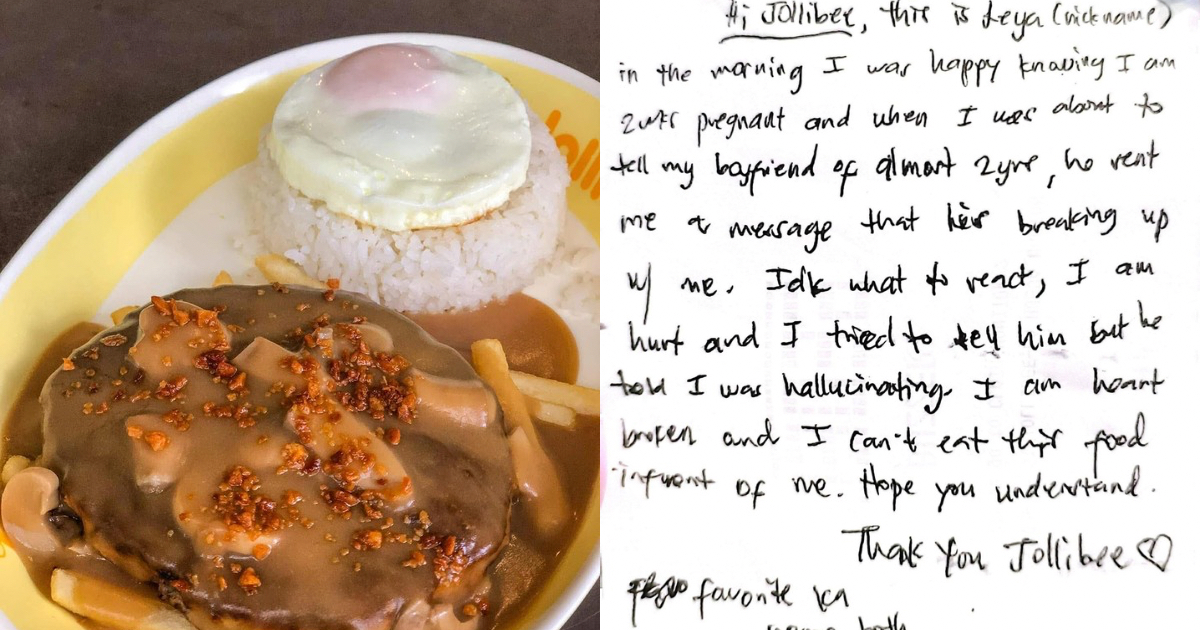 Jolli
Hi Jollibee, this is Leya (nickname)
in the morning I was happy knowing I am
2wks pregnant and when I was about to
tell my boyfriend of almost 2yrs, he sent
me a message that he's breaking up
w/ me. Idk what to react, I am
hurt and I tried to tell him but he
told I was hallucinating. I am heart
broken and I can't eat this food
infront of me. Hope you understand.
Thank You Jollibee ♡
favorite ka